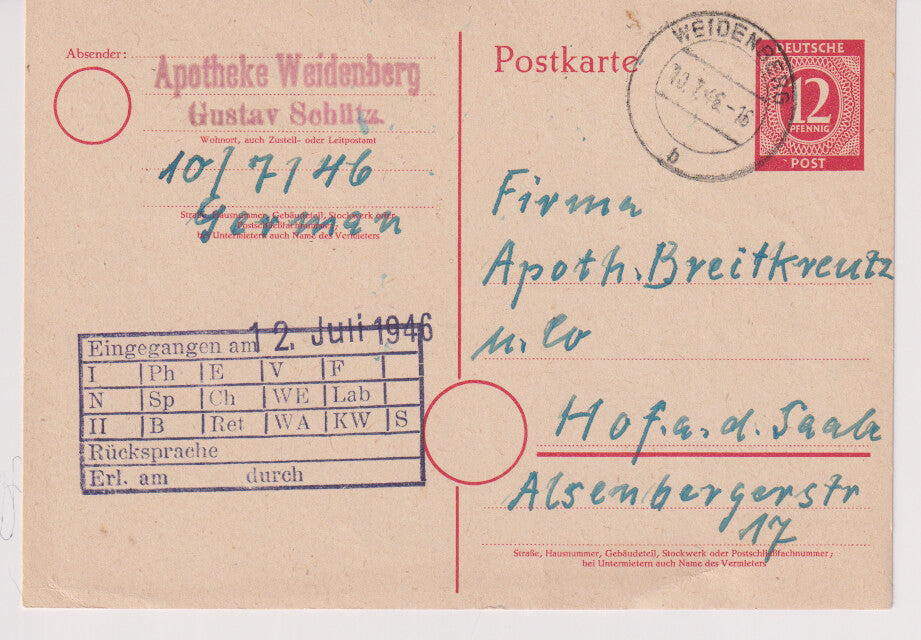 Absender:
Apotheke Weidenberg
Gustav Schütz.
Wohnort, auch Zustell- oder Leitpostamt
10/7/46
German
Straße, Hausnummer, Gebäudeteil, Stockwerk oder
Postschließfachnummer;
bei Untermietern auch Name des Vermieters
Eingegangen am 12. Juli 1946
I Ph E V F
N Sp Ch WE Lab
II B Ret WA KW S
Rücksprache
Erl. am durch
Postkarte
WEIDENBERG
10.7.46.-16
b
DEUTSCHE
12
PFENNIG
POST
Firma
Apoth. Breitkreutz
u. Co
Hof. a. d. Saale
Alsenbergerstr
17
Straße, Hausnummer, Gebäudeteil, Stockwerk oder Postschließfachnummer;
bei Untermietern auch Name des Vermieters